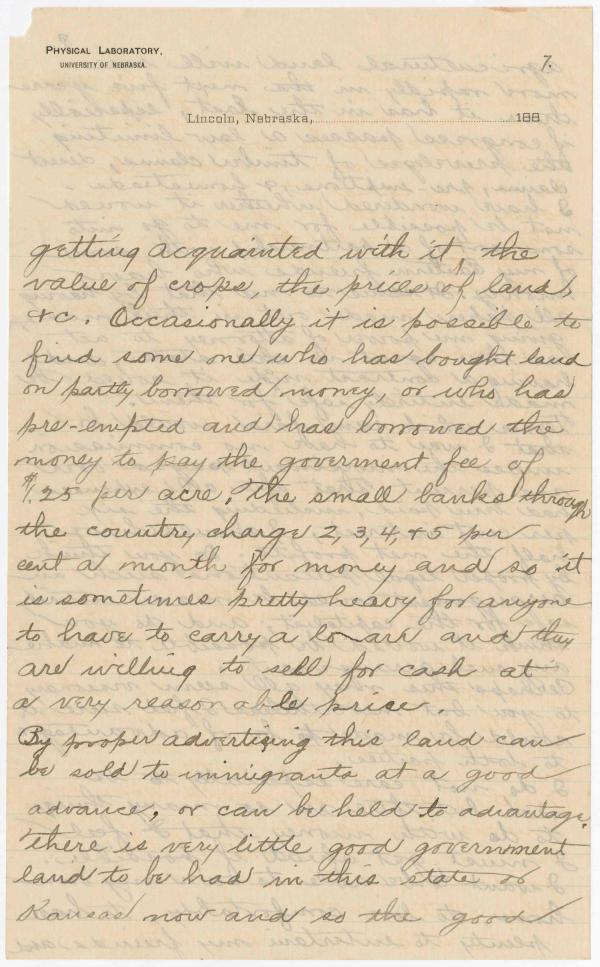 PHYSICAL LABORATORY,
UNIVERSITY OF NEBRASKA.
7.
Lincoln, Nebraska, 188
getting acquainted with it, the
value of crops, the prices of land,
&c. Occasionally it is possible to
find some one who has bought land
on partly borrowed money, or who has
pre-empted and has borrowed the
money to pay the goverment fee of
$1.25 per acre. The small banks through
the country charge 2, 3, 4, & 5 per
cent a month for money and so it
is sometimes pretty heavy for anyone
to have to carry a loan and they
are willing to sell for cash at
a very reasonable price.
By proper advertising this land can
be sold to immigrants at a good
advance, or can be held to advantage.
There is very little good government
land to be had in this state or
Kansas now and so the good